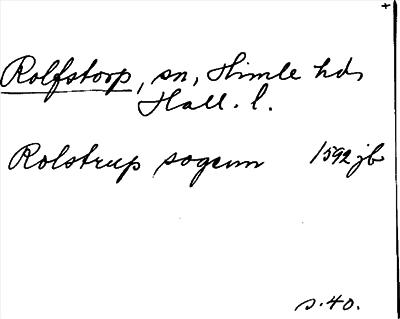 Rolfstorp, sn, Himle hd,
Hall. l.
Rolstrup sogenn 1592 jb
s. 40.